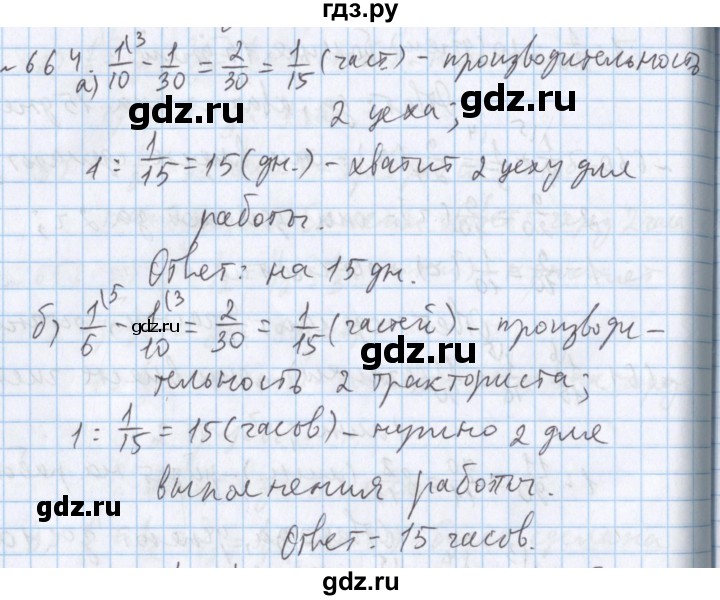 гдз.ру
№ 664. а) 1/10 (3 - 1/30 = 2/30 = 1/15 (част.) - производительность
gdz.ru gdz.ru
2 цеха;
1 : 1/15 = 15 (дн.) - хватит 2 цеху для
работы.
gdz.ru
Ответ: на 15 дн.
б) 1/6 (5 - 1/10 (3 = 2/30 = 1/15 (частей) - производи-
gdz.ru gdz.ru
тельность 2 тракториста;
1 : 1/15 = 15 (часов) - нужно 2 для
выполнения работы.
gdz.ru gdz.ru
Ответ: 15 часов.
gdz.ru